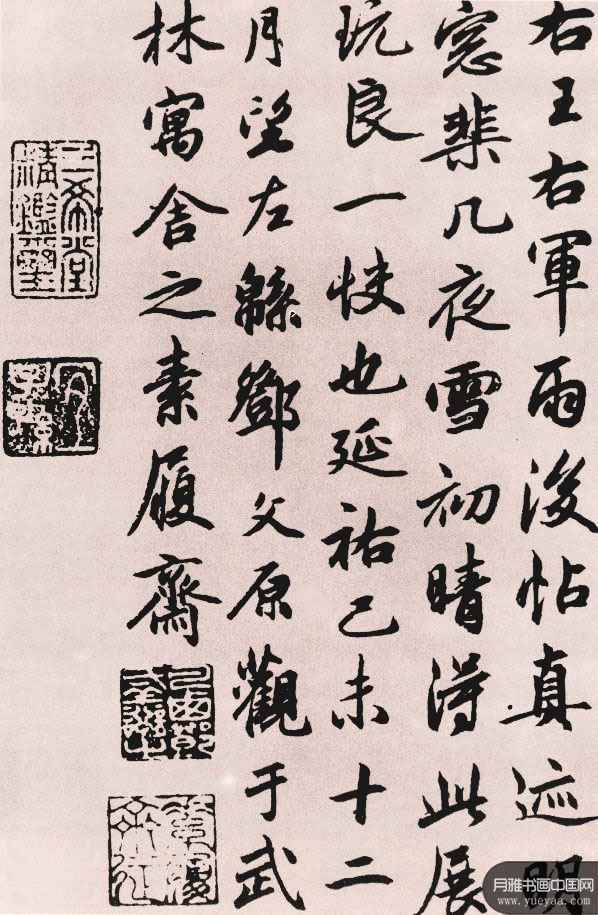 右王右軍雨後帖真迹明
窓棐几夜雪初晴得此展
玩良一快也延祐己未十二
月望左緜鄧文原觀于武
林寓舍之素履齋
三希堂
精鑑璽
月雅书画中国网
www.yueyaa.com